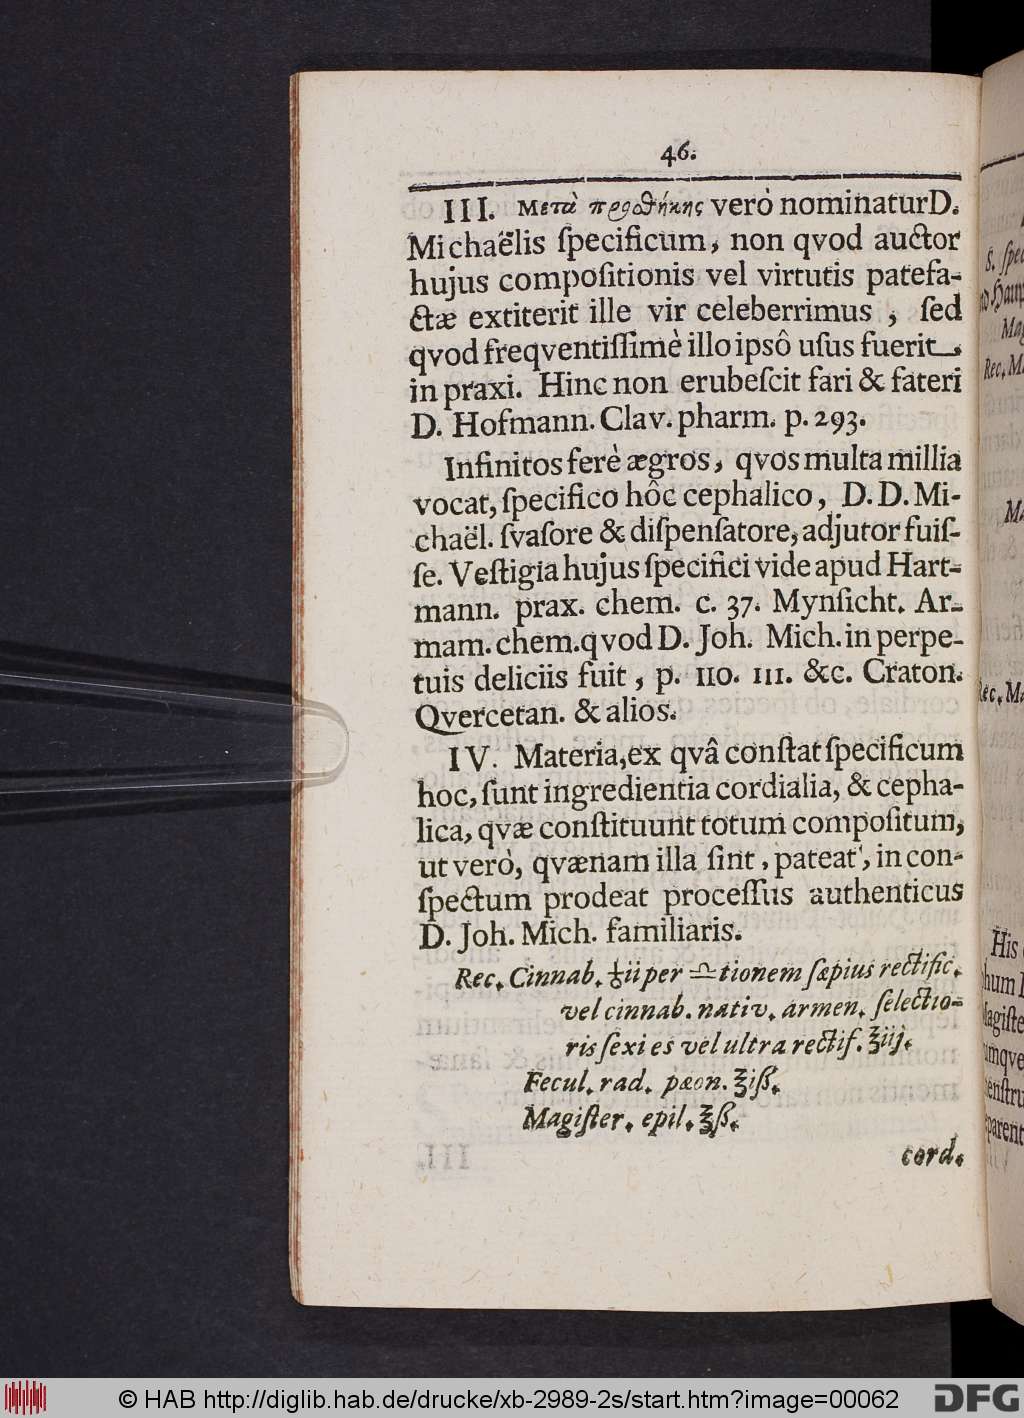 46.
III. Μετὰ προσθήκης verò nominatur D.
Michaëlis ſpecificum, non qvod auctor
hujus compoſitionis vel virtutis patefa-
ctæ extiterit ille vir celeberrimus, ſed
qvod freqventiſſimè illo ipsô uſus fuerit,
in praxi. Hinc non erubeſcit fari & fateri
D. Hofmann. Clav. pharm. p. 293.
Infinitos ferè ægros, qvos multa millia
vocat, ſpecifico hôc cephalico, D. D. Mi-
chaël. ſvaſore & diſpenſatore, adjutor fuiſ-
ſe. Veſtigia hujus ſpecifici vide apud Hart-
mann. prax. chem. c. 37. Mynſicht. Ar-
mam. chem. qvod D. Joh. Mich. in perpe-
tuis deliciis fuit, p. 110. 111. &c. Craton.
Qvercetan. & alios.
IV. Materia, ex qvâ conſtat ſpecificum
hoc, ſunt ingredientia cordialia, & cepha-
lica, qvæ conſtituunt totum compoſitum,
ut verò, qvænam illa ſint, pateat, in con-
ſpectum prodeat proceſſus authenticus
D. Joh. Mich. familiaris.
Rec. Cinnab. ♁ii per ♎tionem ſæpius rectific.
vel cinnab. nativ. armen. ſelectio-
ris ſexies vel ultra rectif. ℥iij.
Fecul. rad. pæon. ℥iß.
Magiſter. epil. ℥ß.
cord.
S. ſpe
Mag
Rec. M
Ma
Rec. Ma
His
hum
Magiſte
umqve
enſtru
parent
© HAB http://diglib.hab.de/drucke/xb-2989-2s/start.htm?image=00062
DFG